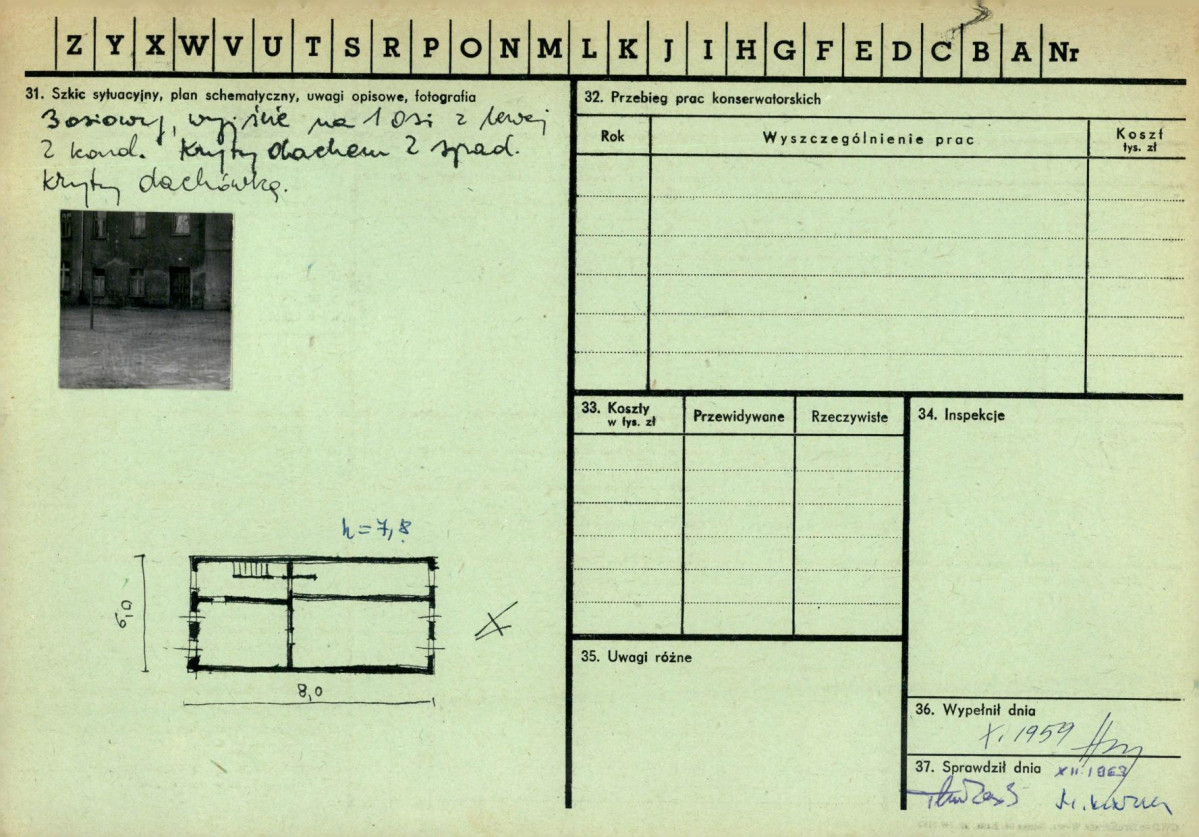 Z Y X W V U T S R P O N M L K J I H G F E D C B A Nr
31. Szkic sytuacyjny, plan schematyczny, uwagi opisowe, fotografia
3 osiowy, wyjście na 1 osi z lewej
2 kond. Kryty dachem 2 spad.
Kryty dachówką.
h = 7,8
6,0
8,0
32. Przebieg prac konserwatorskich
Rok
Wyszczególnienie prac
Koszt
tys. zł
33. Koszty
w tys. zł
Przewidywane
Rzeczywiste
34. Inspekcje
35. Uwagi różne
36. Wypełnił dnia
X. 1959
37. Sprawdził dnia XII 1963